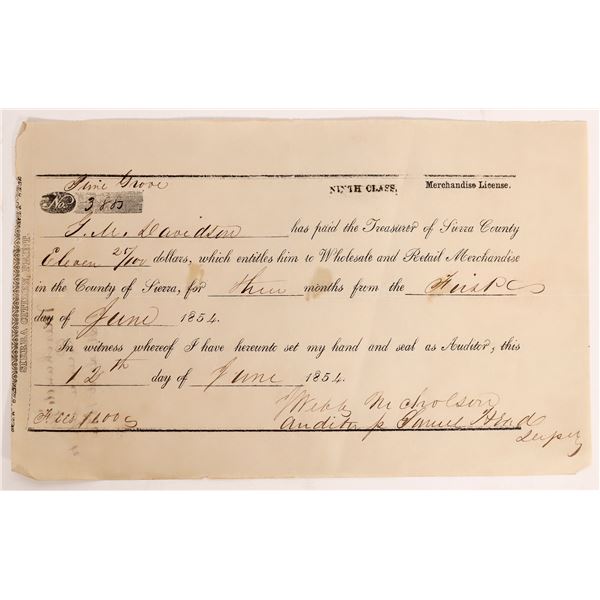 Pine Grove
NINTH CLASS. Merchandise License.
No. 388
J. M. Davidson has paid the Treasurer of Sierra County
Eleven 25/100 dollars, which entitles him to Wholesale and Retail Merchandise
in the County of Sierra, for three months from the First
day of June 1854.
In witness whereof I have hereunto set my hand and seal as Auditor, this
12th day of June 1854.
Webb Nicholson
Fees $1.00 Auditor p Samuel Head
Deputy
SIERRA CITIZEN PRINT.